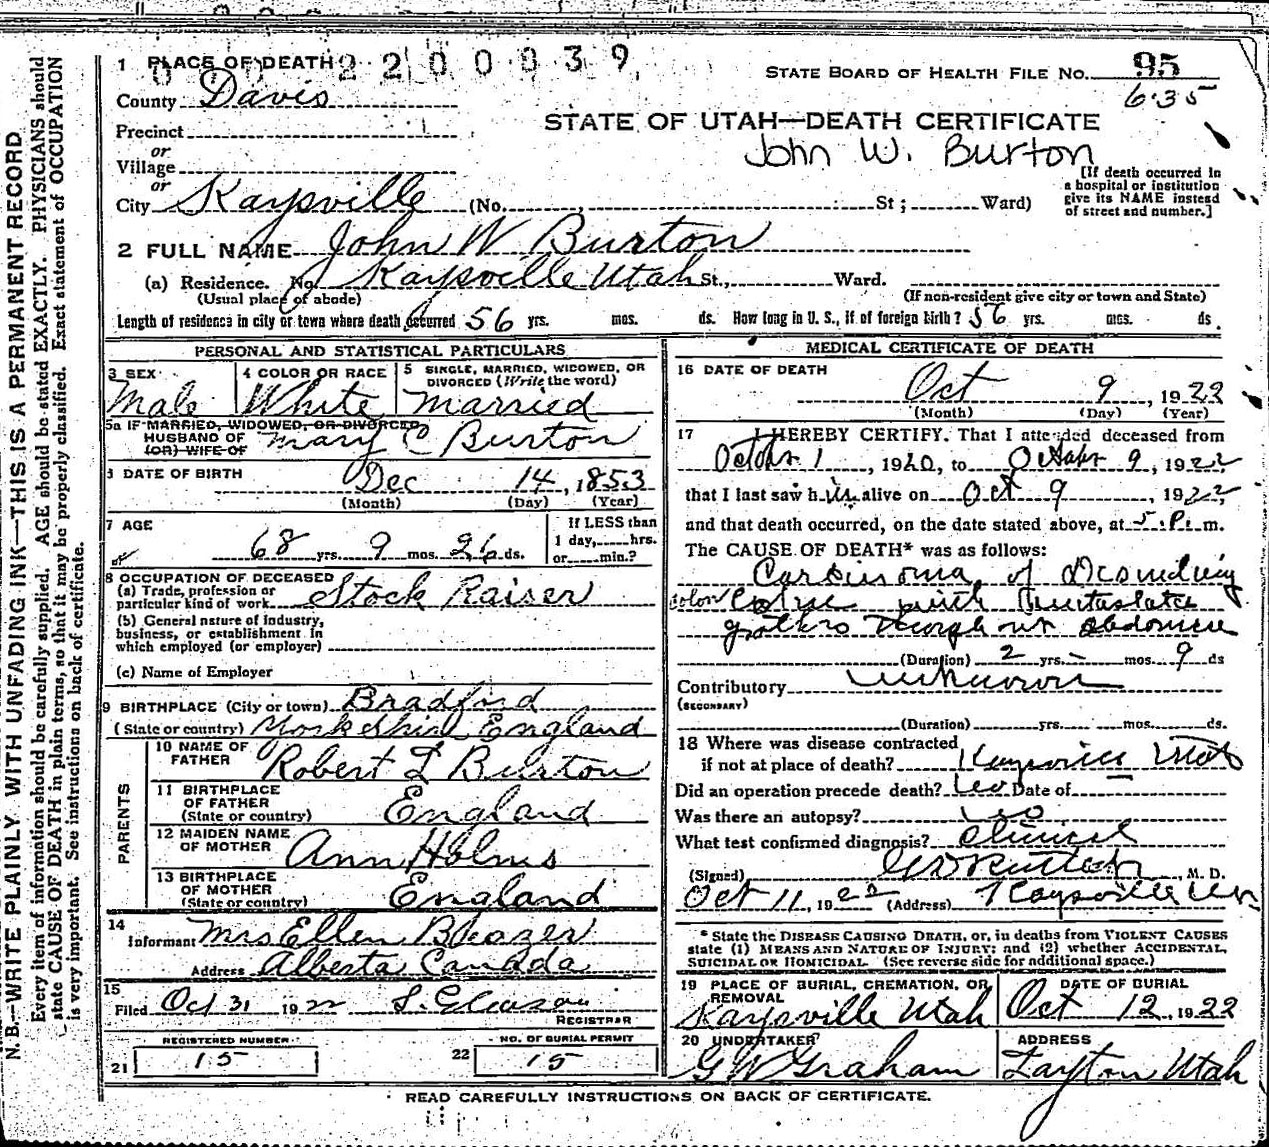 0 0 0 2 2 0 0 8 3 9
1 PLACE OF DEATH
STATE BOARD OF HEALTH FILE NO. 95
County Davis
635
Precinct
STATE OF UTAH—DEATH CERTIFICATE
or
John W. Burton
Village
or
[If death occurred in
a hospital or institution
give its NAME instead
of street and number.]
City Kaysville (No. , St ; Ward)
2 FULL NAME John W Burton
(a) Residence. No Kaysville Utah St., Ward.
(Usual place of abode) (If non-resident give city or town and State)
Length of residence in city or town where death occurred 56 yrs. mos. ds. How long in U. S., if of foreign birth? 56 yrs. mos. ds.
PERSONAL AND STATISTICAL PARTICULARS
3 SEX
Male
4 COLOR OR RACE
White
5 SINGLE, MARRIED, WIDOWED, OR
DIVORCED (Write the word)
Married
5a IF MARRIED, WIDOWED, OR DIVORCED
HUSBAND OF
(OR) WIFE OF
Mary C Burton
DATE OF BIRTH Dec 14, 1853
(Month) (Day) (Year)
7 AGE
68 yrs. 9 mos. 26 ds.
If LESS than
1 day, hrs.
or min.?
8 OCCUPATION OF DECEASED
(a) Trade, profession or
particular kind of work Stock Raiser
(b) General nature of industry,
business, or establishment in
which employed (or employer)
(c) Name of Employer
9 BIRTHPLACE (City or town) Bradford
(State or country) Yorkshire England
PARENTS
10 NAME OF
FATHER
Robert T Burton
11 BIRTHPLACE
OF FATHER
(State or country)
England
12 MAIDEN NAME
OF MOTHER
Ann Holms
13 BIRTHPLACE
OF MOTHER
(State or country)
England
14
Informant Mrs Ellen Bleazer
Address Alberta Canada
15
Filed Oct 31 1922 S. Gleason
REGISTRAR
REGISTERED NUMBER
21 15
NO. OF BURIAL PERMIT
22 15
MEDICAL CERTIFICATE OF DEATH
16 DATE OF DEATH
Oct 9, 1922
(Month) (Day) (Year)
17 I HEREBY CERTIFY. That I attended deceased from
October 1, 1920, to October 9, 1922
that I last saw him alive on Oct 9 1922
and that death occurred, on the date stated above, at 5 P. m.
The CAUSE OF DEATH* was as follows:
Carcinoma of Descending
colon with metastatic
growths throughout abdomen
(Duration) 2 yrs. - mos. 9 ds
Contributory unknown
(SECONDARY)
(Duration) yrs. mos. ds.
18 Where was disease contracted
if not at place of death? Kaysville Utah
Did an operation precede death? no Date of —
Was there an autopsy? no
What test confirmed diagnosis? Clinical
(Signed) M. D.
Oct 11, 1922 (Address) Kaysville Ut
* State the DISEASE CAUSING DEATH, or, in deaths from VIOLENT CAUSES
state (1) MEANS AND NATURE OF INJURY; and (2) whether ACCIDENTAL,
SUICIDAL OR HOMICIDAL. (See reverse side for additional space.)
19 PLACE OF BURIAL, CREMATION, OR
REMOVAL
Kaysville Utah
DATE OF BURIAL
Oct 12, 1922
20 UNDERTAKER
G W Graham
ADDRESS
Layton Utah
READ CAREFULLY INSTRUCTIONS ON BACK OF CERTIFICATE.
N. B.—WRITE PLAINLY WITH UNFADING INK—THIS IS A PERMANENT RECORD
Every item of information should be carefully supplied. AGE should be stated EXACTLY. PHYSICIANS should
state CAUSE OF DEATH in plain terms, so that it may be properly classified. Exact statement of OCCUPATION
is very important. See instructions on back of certificate.